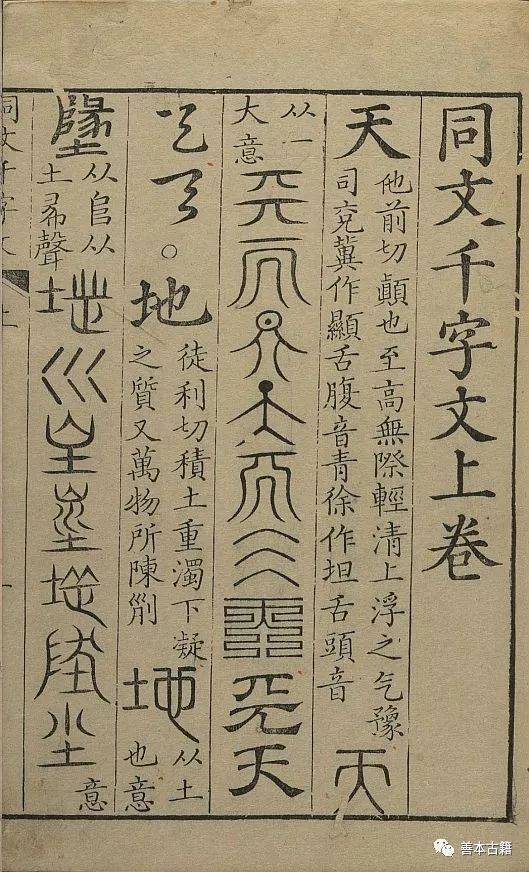 同文千字文上卷
天
他前切顛也至高無際輕清上浮之气豫
司兖冀作顯舌腹音青徐作坦舌頭音
天
从一
大意
天
。地
徒利切積土重濁下凝
之質又萬物所陳
地
从土
也意
墬
从𨸏从
土聲
地
坔
意
同文千字文
上
善本古籍